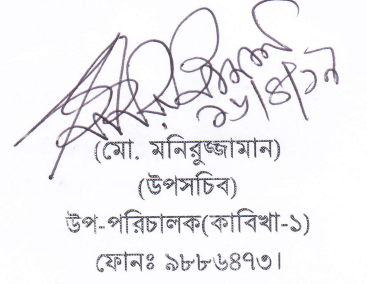 ২৬/৪/১৭
(মো. মনিরুজ্জামান)
(উপসচিব)
উপ-পরিচালক(কাবিখা-১)
ফোনঃ ৯৮৮৬৪৭৩।